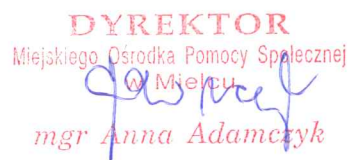 DYREKTOR
Miejskiego Ośrodka Pomocy Społecznej
w Mielcu
mgr Anna Adamczyk